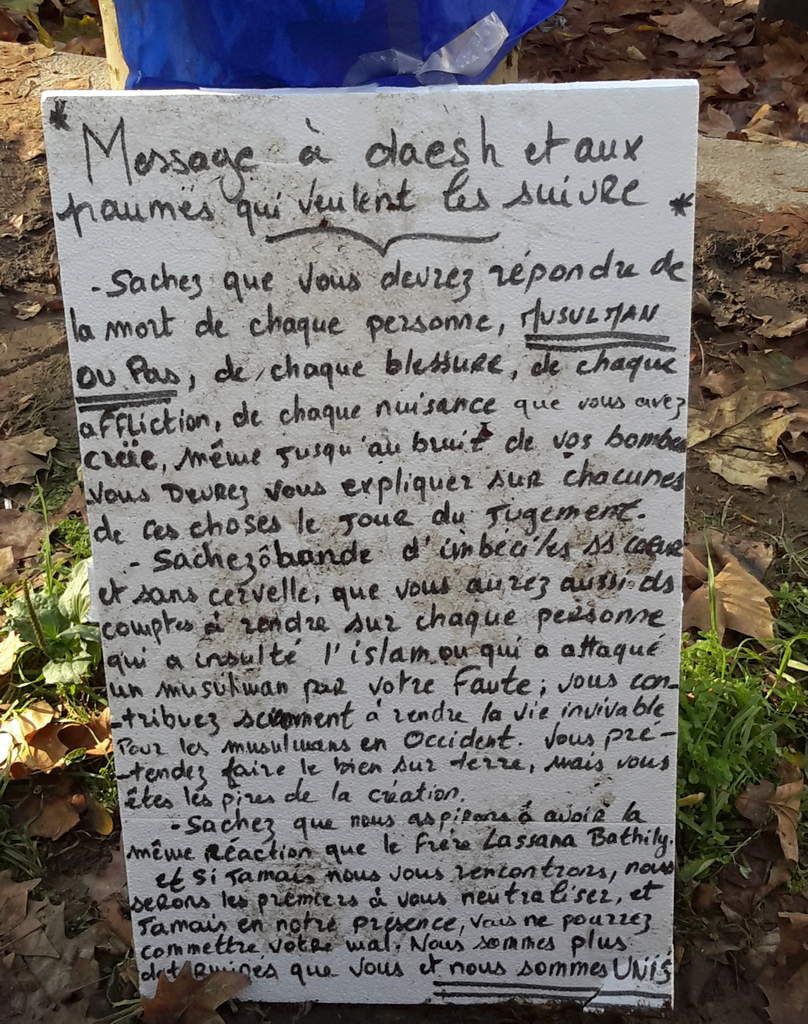 * Message à daesh et aux
paumés qui veulent les suivre *
- Sachez que vous devrez répondre de
la mort de chaque personne, MUSULMAN
OU Pas, de chaque blessure, de chaque
affliction, de chaque nuisance que vous avez
créée, même jusqu'au bruit de vos bombes
Vous Devrez vous expliquer sur chacunes
de ces choses le Jour du Jugement.
- Sachez ô bande d'imbéciles ss cœur
et sans cervelle, que vous aurez aussi ds
comptes à rendre sur chaque personne
qui a insulté l'islam ou qui a attaqué
un musulman par votre Faute; vous con-
-tribuez sciemment à rendre la vie invivable
Pour les musulmans en Occident. Vous pré-
-tendez faire le bien sur terre, mais vous
êtes les pires de la création.
- Sachez que nous aspirons à avoir la
même Réaction que le Frère Lassana Bathily.
et Si Jamais nous vous rencontrons, nous
serons les premiers à vous neutraliser, et
Jamais en notre présence, vous ne pourrez
commettre votre mal. Nous sommes plus
déterminés que vous et nous sommes UNIS